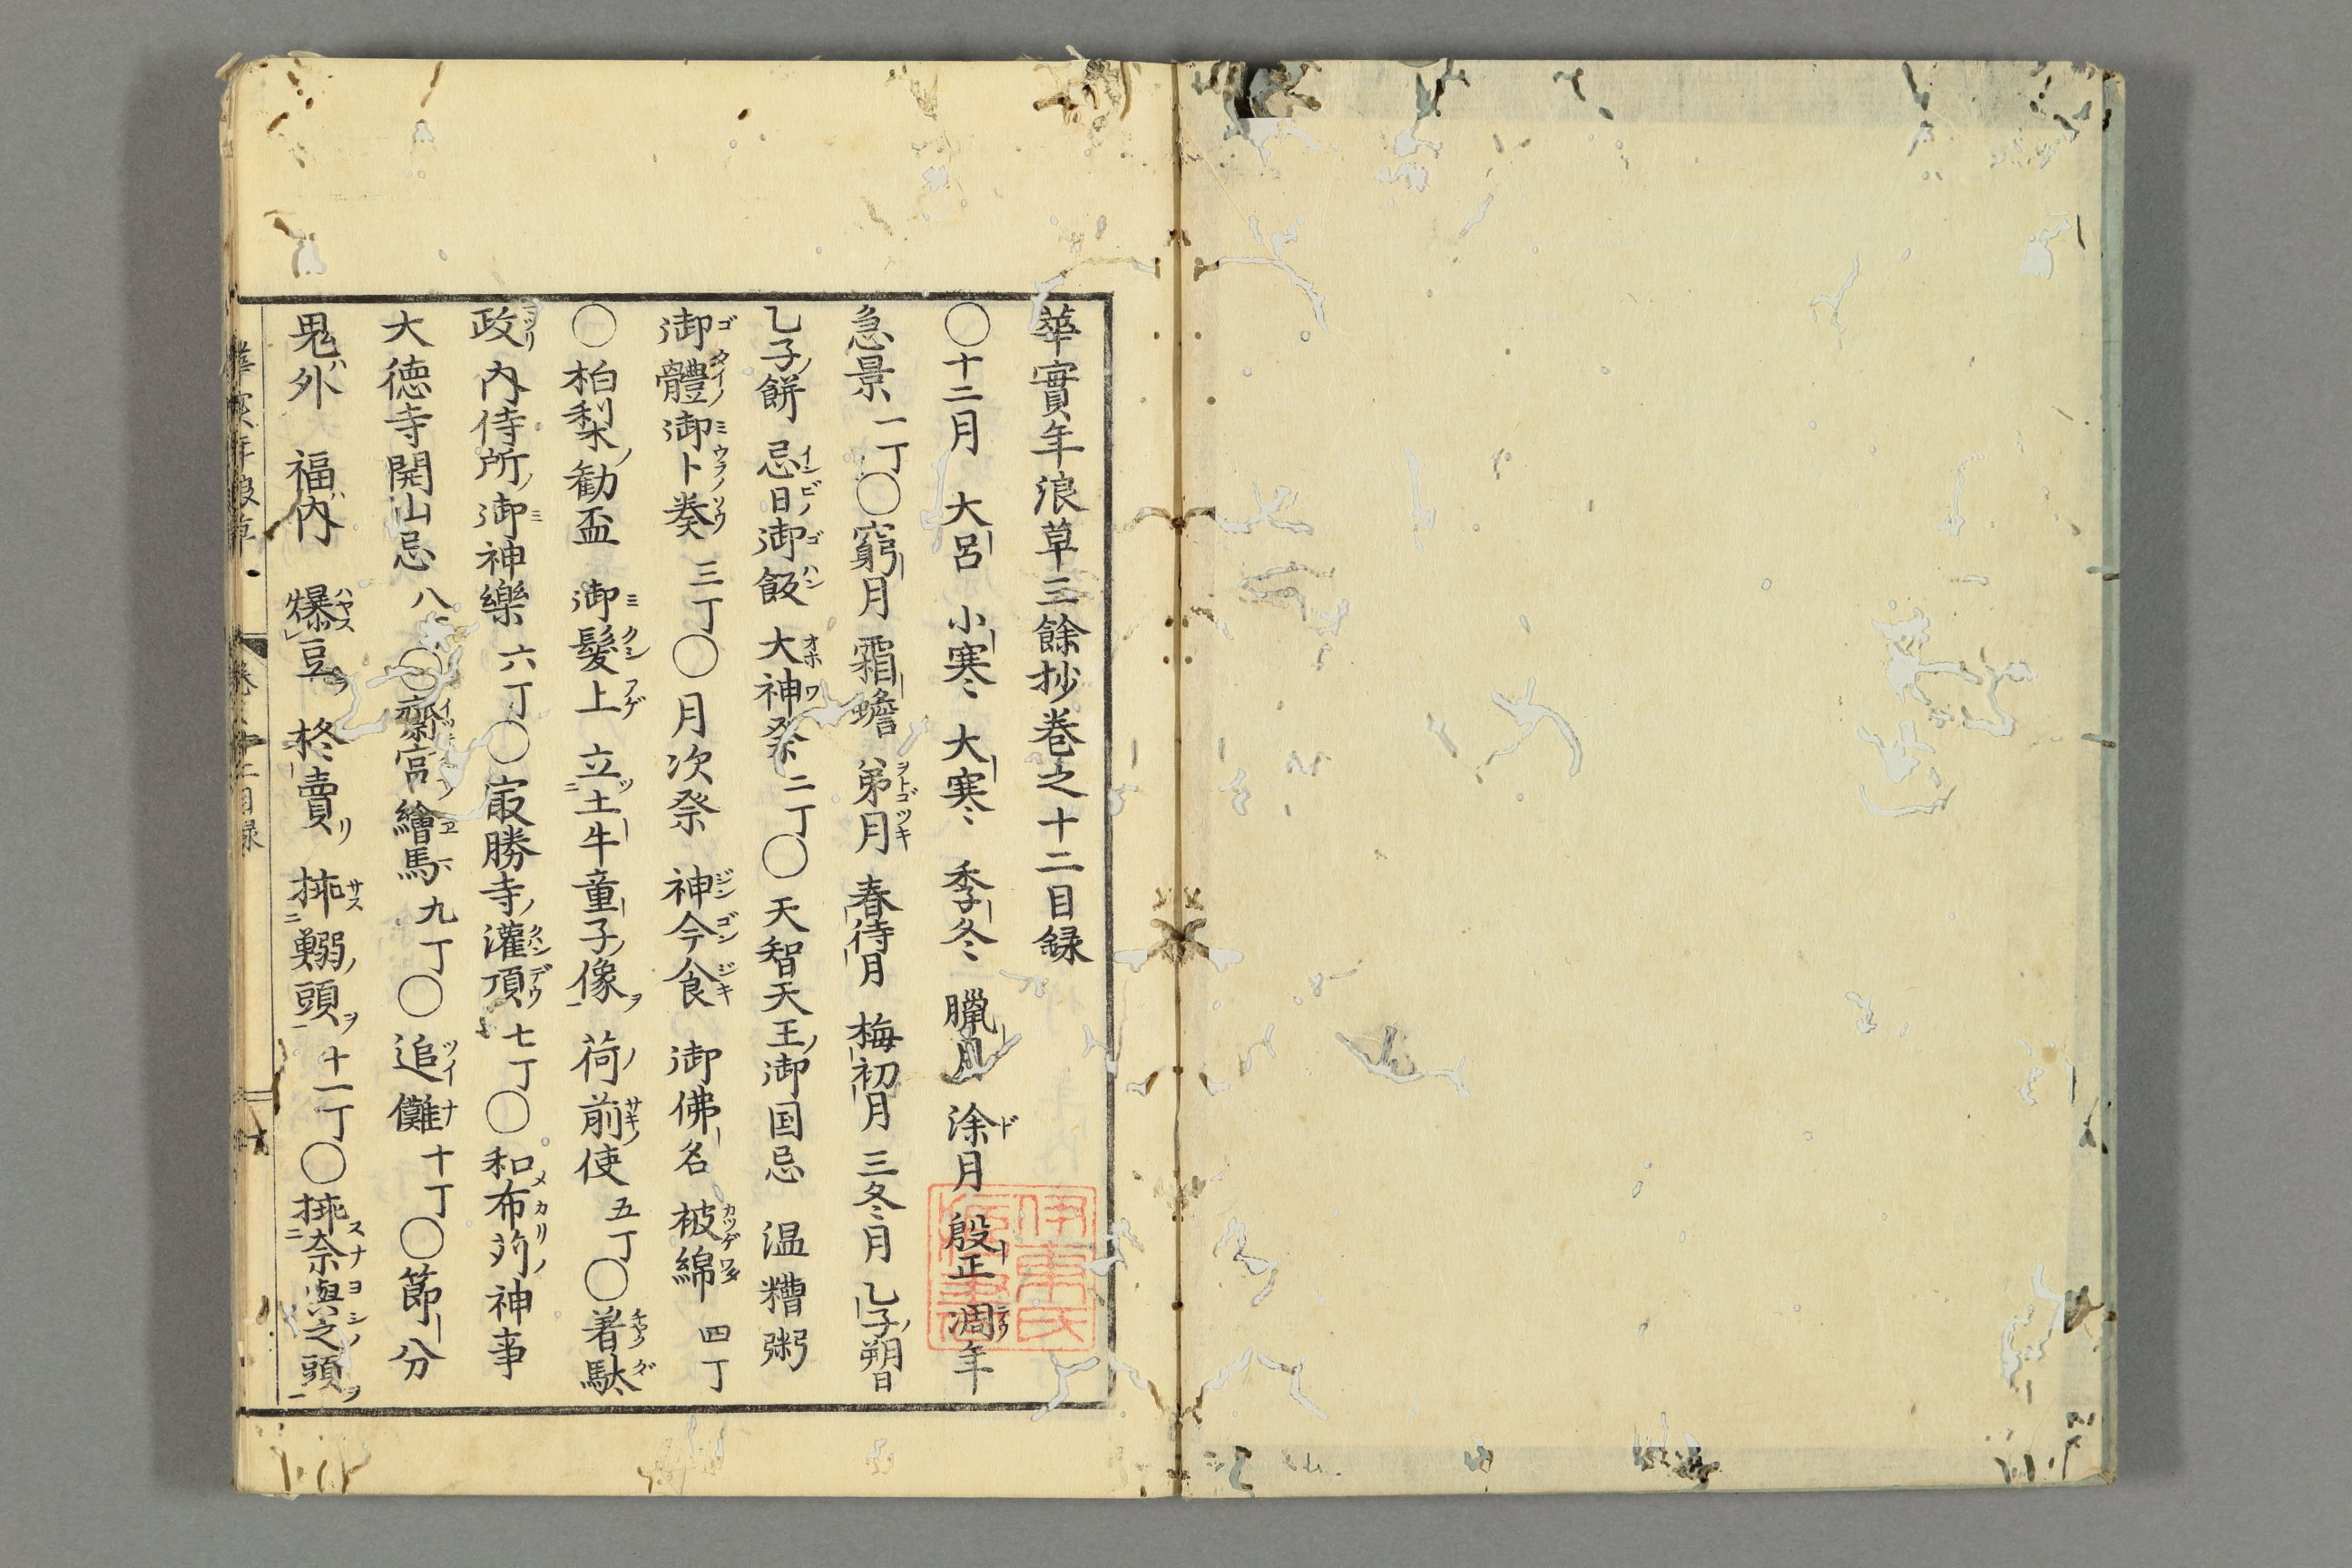 華實年浪草三餘抄巻之十二目録
〇十二月 大呂 小寒 大寒 季冬 臘月 涂月 殷正 凋年
急景 一丁〇窮月 霜蟾 弟月 春待月 梅初月 三冬月 乙子朔日
乙子ノ餅 忌日ノ御飯 大神祭 二丁〇天智天王ノ御国忌 温糟粥
御體ノ御卜奏 三丁〇月次祭 神今食 御佛名 被綿 四丁
〇柏梨ノ勧盃 御髪上 立土牛童子ノ像ヲ 荷ノ前ノ使 五丁〇着駄
政 内侍所ノ御神樂 六丁〇㝡勝寺ノ灌頂 七丁〇和布苅ノ神事
大徳寺開山忌 八〇齋宮繪馬 九丁〇追儺 十丁〇節分
鬼ハ外 福ハ内 爆豆ヲ 柊賣リ 挿鰯ノ頭ヲ 十一丁〇挿奈與之ノ頭ヲ
伊東氏